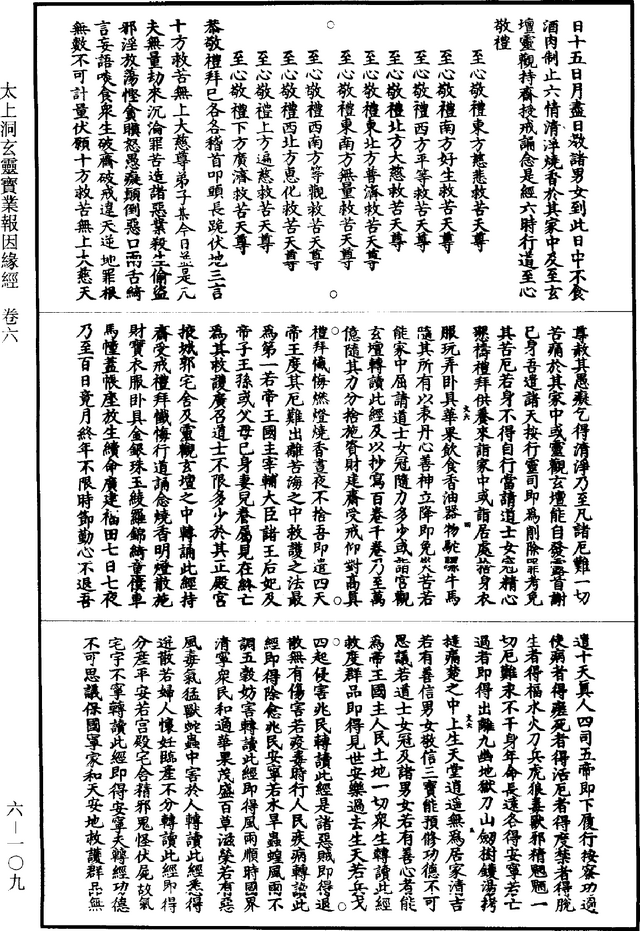 太上洞玄靈寶業報因緣經　卷六
六—一〇九
日十五日月盡日教諸男女到此日中不食
酒肉制止六情清淨燒香於其家中及至玄
壇靈觀持齋授戒誦念是經六時行道至心
敬禮
至心敬禮東方慈悲救苦天尊
至心敬禮南方好生救苦天尊
至心敬禮西方平等救苦天尊
至心敬禮北方大慈救苦天尊
至心敬禮東北方普濟救苦天尊
至心敬禮東南方無量救苦天尊
至心敬禮西南方等觀救苦天尊
至心敬禮西北方惠化救苦天尊
至心敬禮上方遍慈救苦天尊
至心敬禮下方廣濟救苦天尊
恭敬禮拜已各各稽首叩頭長跪伏地三言
十方救苦無上大慈尊弟子某今日並是凡
夫無量劫來沉淪罪苦造諸惡業殺生偷盜
邪淫放蕩慳貪瞋怒愚癡顛倒惡口兩舌綺
言妄語噉食衆生破齋破戒違天逆地罪根
無數不可計量伏願十方救苦無上大慈天
尊救其愚癡乞得清淨乃至凡諸厄難一切
苦痛於其家中或靈觀玄壇能自發露首謝
己身吾遣諸天按行靈司即爲削除罪考免
其苦厄若身不得自行當請道士女冠精心
懇禱禮拜供養來詣家中或詣居處捨身衣
服玩弄卧具華果飲食香油器物駝騾牛馬
隨其所有以表丹心善神立降即免災苦若
能家中屈請道士女冠隨力多少或詣宮觀
玄壇轉讀此經及以抄寫百卷千卷乃至萬
億隨其力分捨施資財建齋受戒仰對高真
禮拜懺悔燃燈燒香晝夜不捨吾即遣四天
帝王度其厄難出離苦海之中救護之法最
爲第一若帝王國主宰輔大臣諸王后妃及
帝子王孫或父母已身妻兒眷屬見在終亡
爲其救護廣召道士不限多少於其正殿宮
掖城郭宅舍及靈觀玄壇之中轉誦此經持
齋受戒禮拜懺悔行道誦念燒香明燈散施
財寶衣服卧具金銀珠玉綾羅錦綺童僕車
馬幢蓋帳座放生續命廣建福田七日七夜
乃至百日竟月終年不限時節勤心不退吾
遣十天真人四司五帝即下履行按察功過
使病者得瘥死者得活厄者得度禁者得脫
生者得福水火刀兵虎狼毒獸邪精魍魎一
切厄難來不干身年命長遠各得安寧若亡
過者即得出離九幽地獄刀山劒樹鑊湯拷
撻痛楚之中上生天堂逍遥無爲居家清吉
若有善信男女敬信三寶能預修功德不可
思議若道士女冠及諸男女若有善心者能
爲帝王國主人民土地一切衆生轉讀此經
救度群品即得見世安樂過去生天若兵戈
四起侵害兆民轉讀此經是諸惡賊即得退
散無有傷害若疫毒時行人民疾病轉讀此
經即得除愈兆民安寧若水旱蟲蝗風雨不
調五穀妨害轉讀此經即得風雨順時國界
清寧衆民和適華果茂盛百草滋榮若有惡
風毒氣猛獸蛇蟲中害於人轉讀此經悉得
迸散若婦人懷妊臨產不分轉讀此經即得
分產平安若宮殿宅舍精邪鬼怪伏屍故氣
宅宇不寧轉讀此經即得安寧夫轉經功德
不可思議保國寧家和天安地救護群品無